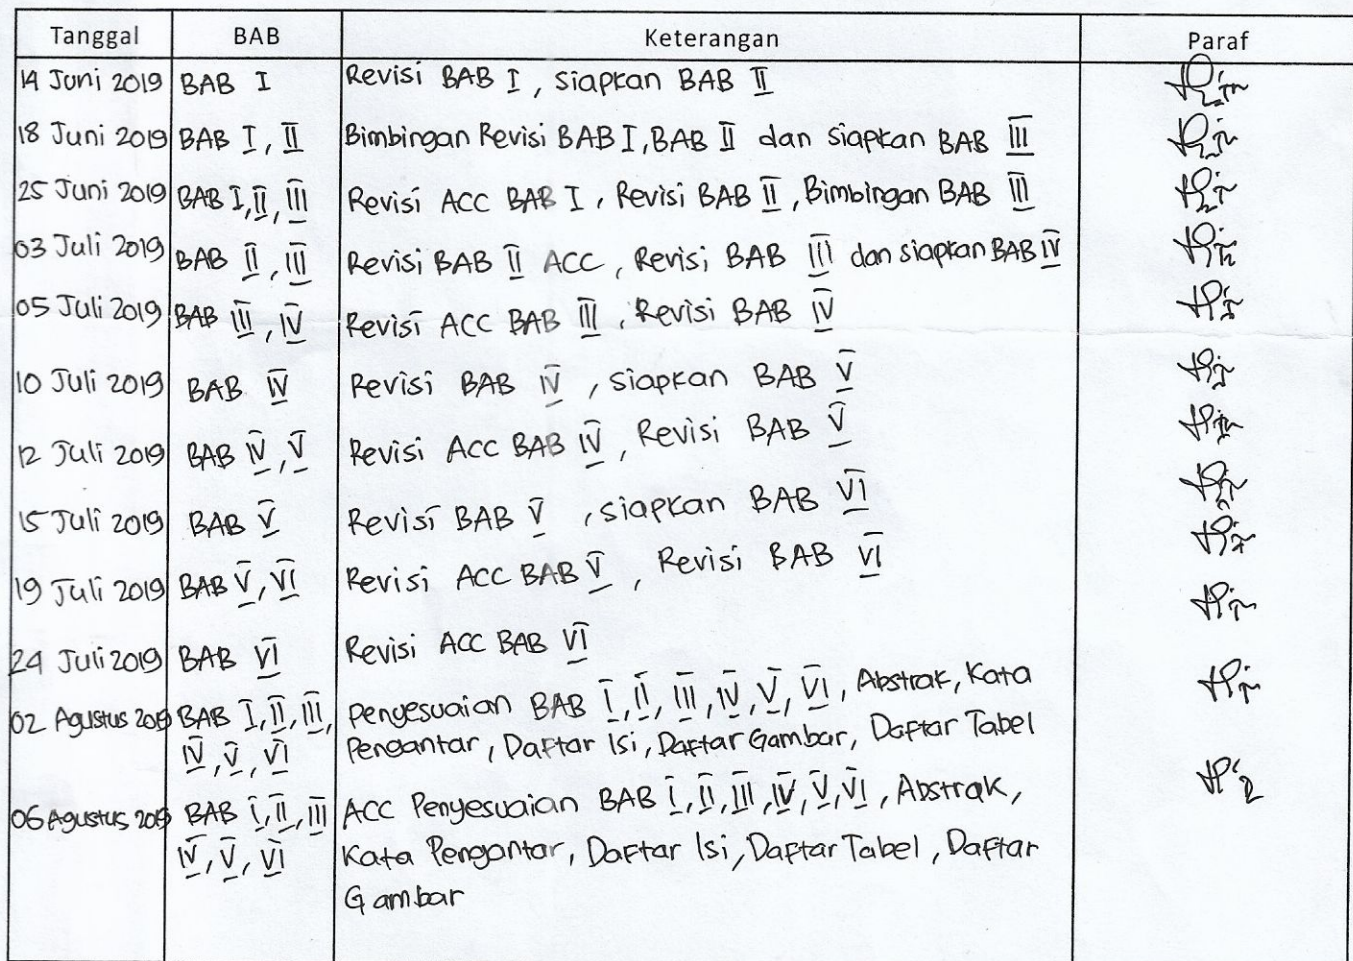 Tanggal BAB Keterangan Paraf
14 Juni 2019 BAB I Revisi BAB I, siapkan BAB II
18 Juni 2019 BAB I, II Bimbingan Revisi BAB I, BAB II dan siapkan BAB III
25 Juni 2019 BAB I, II, III Revisi ACC BAB I, Revisi BAB II, Bimbingan BAB III
03 Juli 2019 BAB II, III Revisi BAB II ACC, Revisi BAB III dan siapkan BAB IV
05 Juli 2019 BAB III, IV Revisi ACC BAB III, Revisi BAB IV
10 Juli 2019 BAB IV Revisi BAB IV, siapkan BAB V
12 Juli 2019 BAB IV, V Revisi ACC BAB IV, Revisi BAB V
15 Juli 2019 BAB V Revisi BAB V, siapkan BAB VI
19 Juli 2019 BAB V, VI Revisi ACC BAB V, Revisi BAB VI
24 Juli 2019 BAB VI Revisi ACC BAB VI
02 Agustus 2019 BAB I, II, III, Penyesuaian BAB I, II, III, IV, V, VI, Abstrak, Kata
IV, V, VI Pengantar, Daftar Isi, Daftar Gambar, Daftar Tabel
06 Agustus 2019 BAB I, II, III ACC Penyesuaian BAB I, II, III, IV, V, VI, Abstrak,
IV, V, VI Kata Pengantar, Daftar Isi, Daftar Tabel, Daftar
Gambar